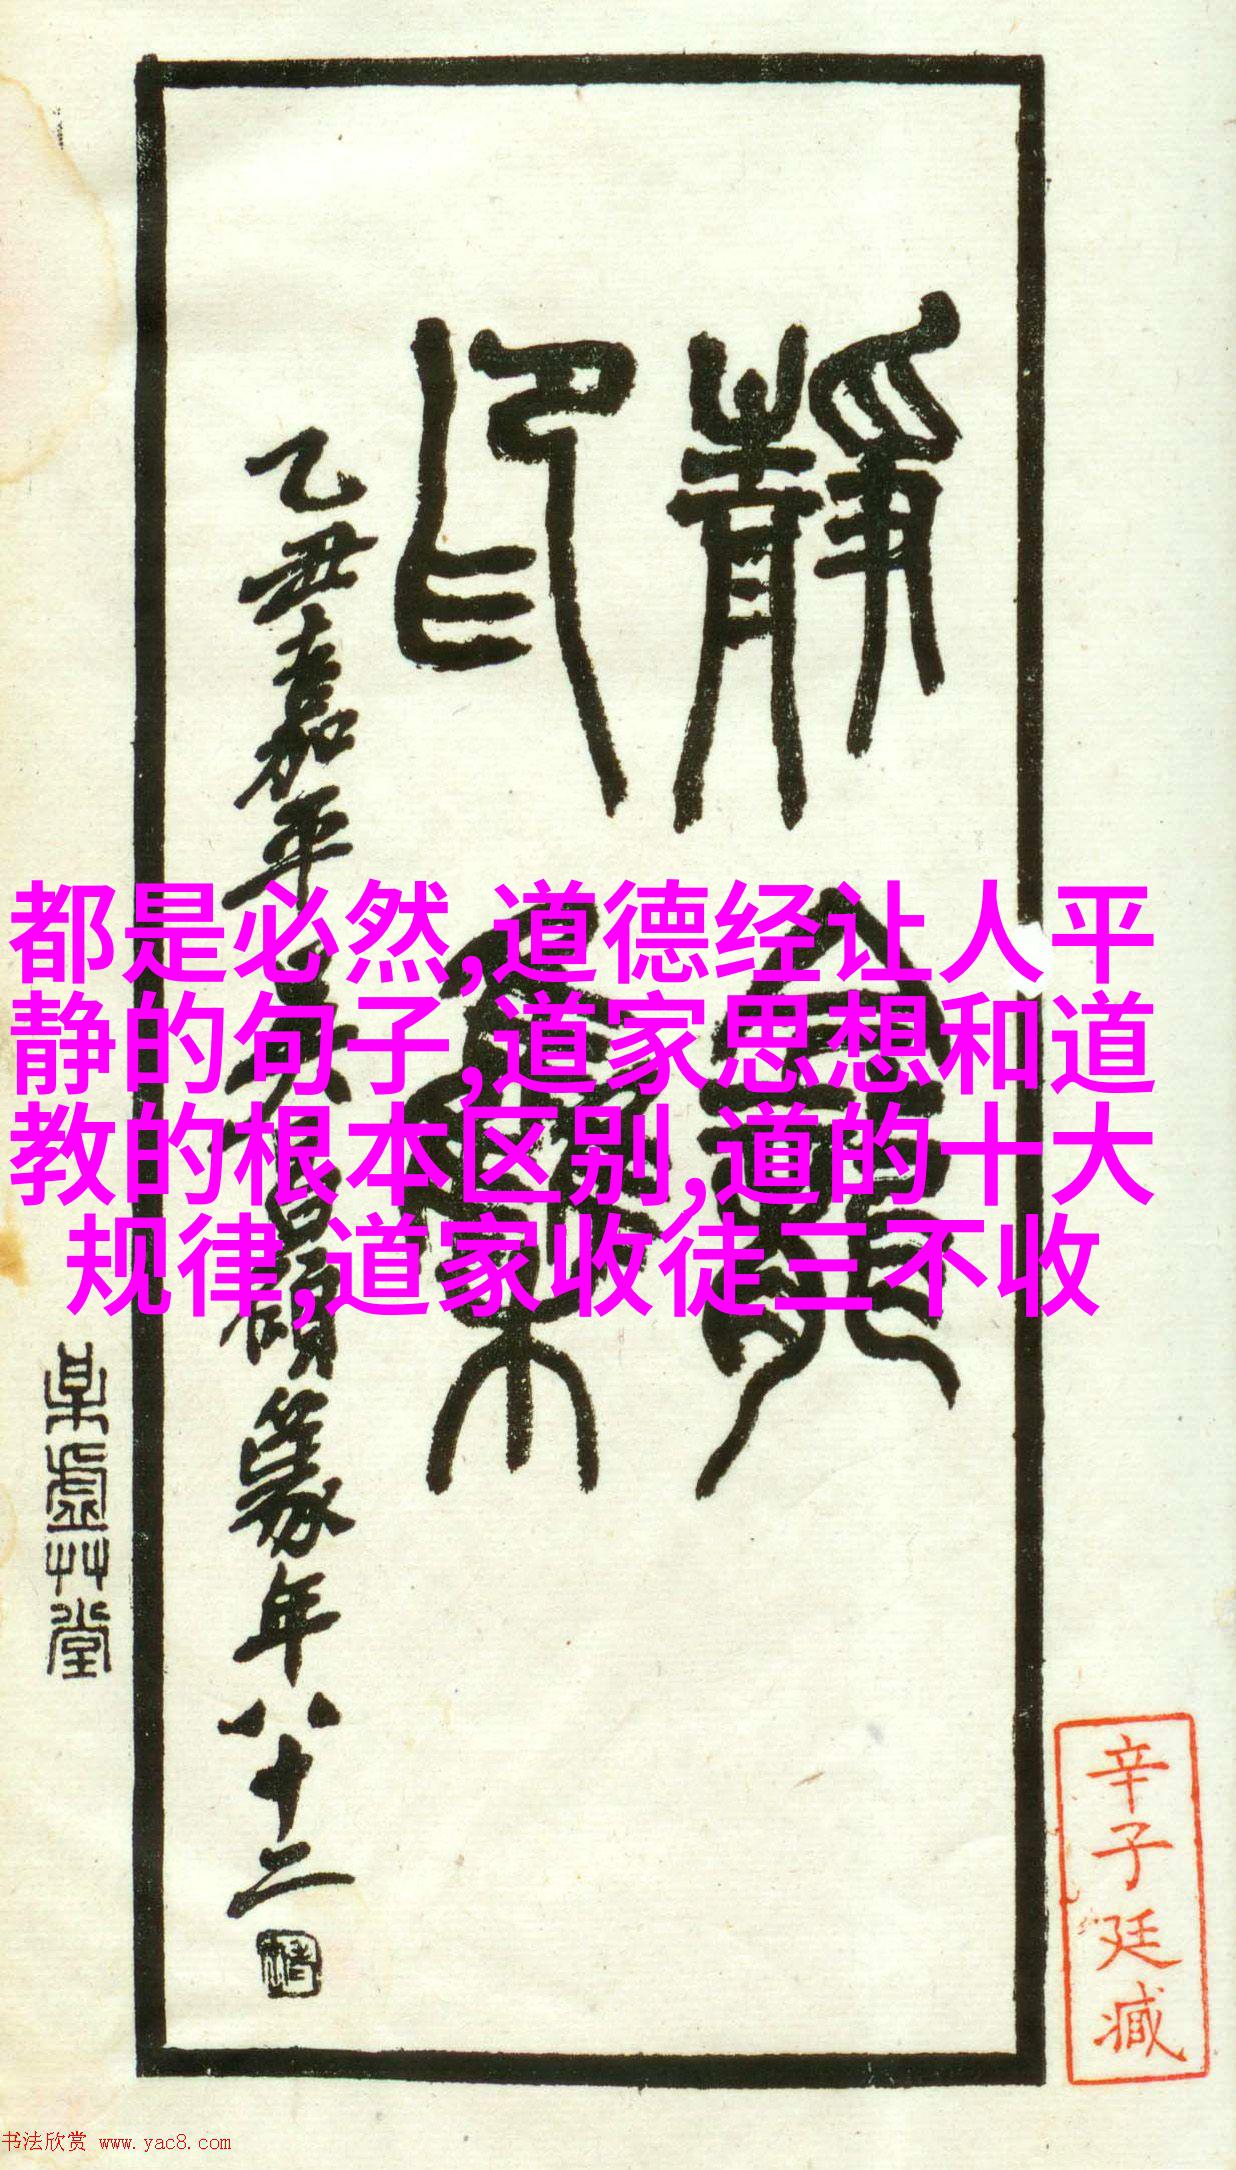 都是必然,道德经让人平
静的句子,道家思想和道
教的根本区别,道的十大
规律,道家收徒三不收
静龕
印集
乙丑嘉平吴昌碩篆年八十二
某虚艸堂
辛子廷臧
书法欣赏 www.yac8.com